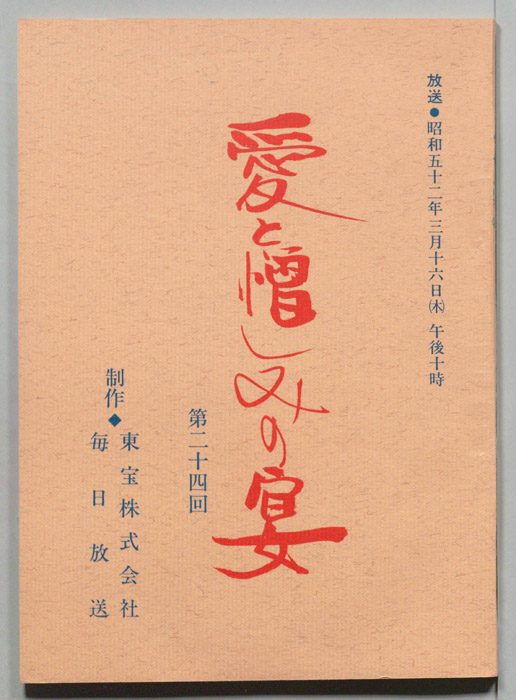 放送●昭和五十二年三月十六日㈭ 午後十時
愛と憎しみの宴
第二十四回
制作◆東宝株式会社
毎日放送